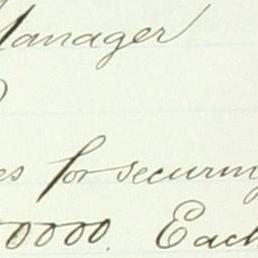 Manager
es for securing
0000. Each